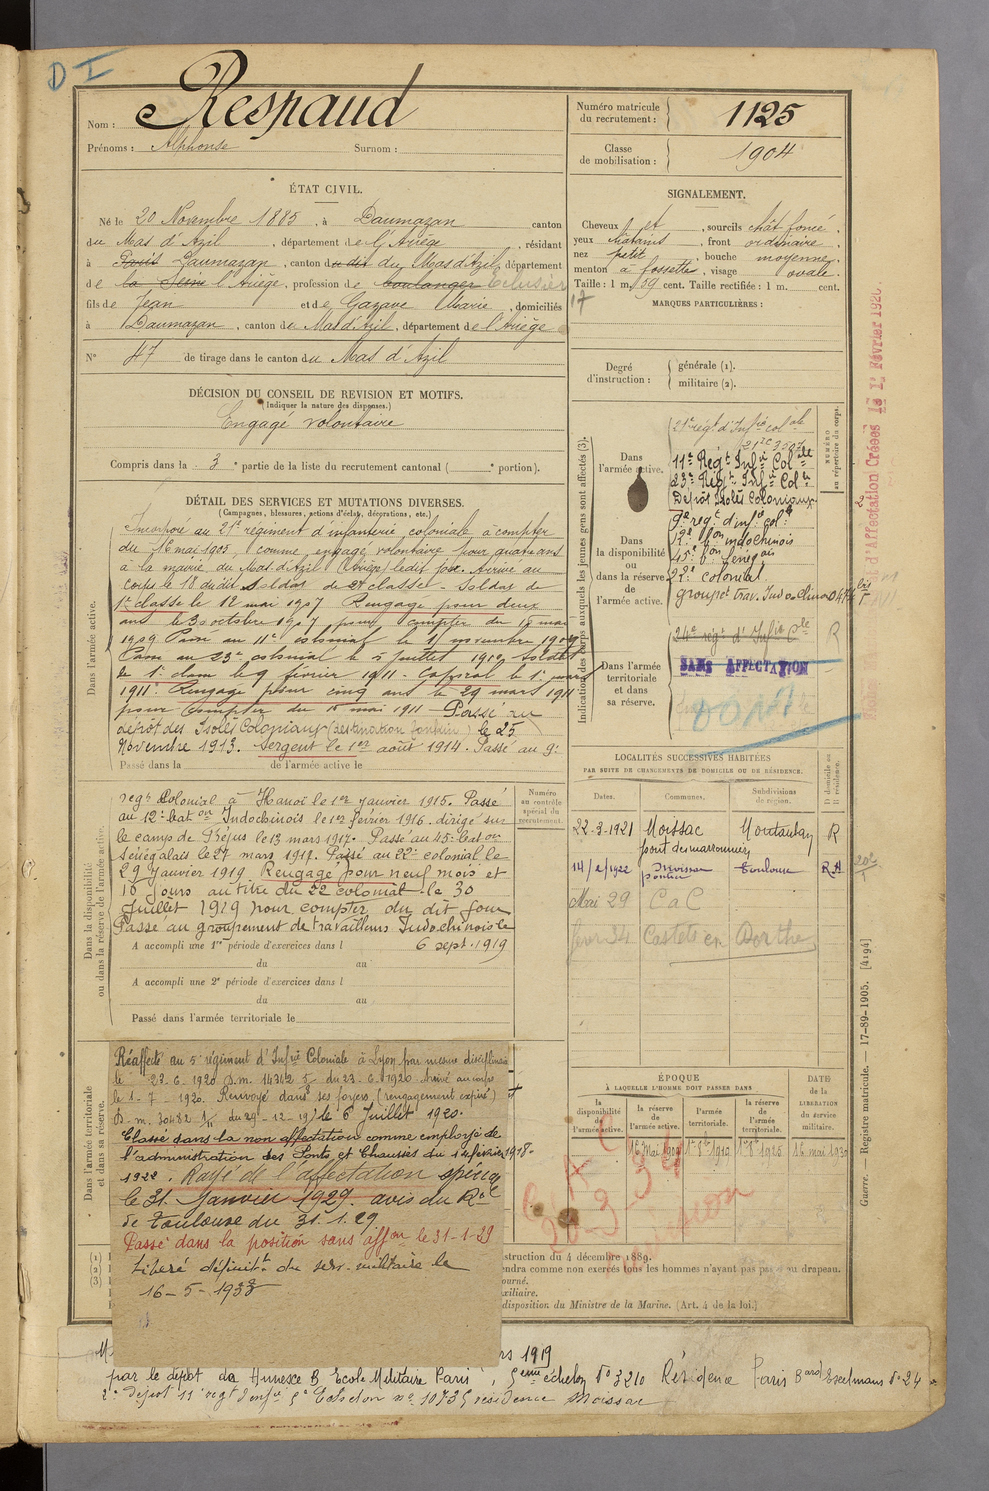 D I
Nom : Respaud
Prénoms : Alphonse Surnom :
Numéro matricule du recrutement : 1125
Classe de mobilisation : 1904
ÉTAT CIVIL.
Né le 20 Novembre 1885, à Daumazan canton
du Mas d'Azil, département de l'Ariège, résidant
à Paris Daumazan, canton du dit du Mas d'Azil, département
de la Seine l'Ariège, profession de boulanger Eclusier
fils de Jean et de Gazave Marie, domiciliés
à Daumazan, canton du Mas d'Azil, département de l'Ariège
N° 47 de tirage dans le canton du Mas d'Azil
SIGNALEMENT.
Cheveux et, sourcils chât foncé.
yeux chatains, front ordinaire.
nez petit, bouche moyenne.
menton à fossette, visage ovale.
Taille : 1 m. 09 cent. Taille rectifiée : 1 m. cent.
17
MARQUES PARTICULIÈRES :
Degré d'instruction : générale (1).
militaire (2).
DÉCISION DU CONSEIL DE REVISION ET MOTIFS.
(Indiquer la nature des dispenses.)
Engagé volontaire
Compris dans la 3e partie de la liste du recrutement cantonal ( e portion).
DÉTAIL DES SERVICES ET MUTATIONS DIVERSES.
(Campagnes, blessures, actions d'éclat, décorations, etc.)
Dans l'armée active.
Incorporé au 21e régiment d'infanterie coloniale à compter
du 16 mai 1905, comme engagé volontaire pour quatre ans
à la mairie du Mas d'Azil (Ariège) ledit jour. Arrivé au
corps le 18 du dit. Soldat de 2e classe. Soldat de
1re classe le 12 mai 1907. Rengagé pour deux
ans le 30 octobre 1907 pour compter du 16 mai
1909. Passé au 11e colonial le 11 novembre 1909
Passé au 23e colonial le 5 juillet 1910. Soldat
de 1e classe le 9 février 1911. Caporal le 1er mars
1911. Rengagé pour cinq ans le 29 mars 1911
pour compter du 16 mai 1911 - Passé au
dépôt des Isolés Coloniaux (destination Tonkin) le 25
Novembre 1913. Sergent le 1er août 1914. Passé au 9e
Passé dans la de l'armée active le
Dans la disponibilité ou dans la réserve de l'armée active.
regt Colonial à Hanoï le 1er janvier 1915. Passé
au 12e bat on Indochinois le 1er février 1916. dirigé sur
le camp de Fréjus le 13 mars 1917. Passé au 45e bat on
Sénégalais le 27 mars 1917. Passé au 22e colonial le
29 janvier 1919. Rengagé pour neuf mois et
16 jours au titre du 22 colonial le 30
Juillet 1919 pour compter du dit jour
Passé au groupement de travailleurs Indochinois le
6 sept. 1919
A accompli une 1re période d'exercices dans l
du au
A accompli une 2e période d'exercices dans l
du au
Passé dans l'armée territoriale le
Numéro au contrôle spécial du recrutement.
Dans l'armée territoriale et dans sa réserve.
Réaffecté au 5e régiment d'Infrie Coloniale à Lyon par mesure disciplinaire
le 23-6-1920 D.m. 14342 5 du 23-6-1920. Arrivé au corps
le 1-7-1920. Renvoyé dans ses foyers (rengagement expiré)
D.m. 30482 1/11 du 29-12-19) le 6 Juillet 1920.
Classé dans la non affectation comme employé de
l'administration des Ponts et Chaussés du 1er février 1918-
1922. Rayé de l'affectation spéciale
le 31 Janvier 1929 avis du Ral
de Toulouse du 31.1.29
Passé dans la position sans affon le 31-1-29
Libéré définitt du serv. militaire le
16-5-1933
Indication des corps auxquels les jeunes gens sont affectés (3).
NUMÉRO au répertoire du corps.
Dans l'armée active.
21e regt d'Infrie colale
21 2C 3507
11e Regt Infie Colale
23e Regt Infie Colle
Dépôt Isolés Coloniaux
Dans la disponibilité ou dans la réserve de l'armée active.
9e regt d'infie colle
12e Bon indochinois
45e bon Sénégais
22e colonial
groupet Trav. Indochinois
Dans l'armée territoriale et dans sa réserve.
24e regt d'Infie Cle R
SANS AFFECTATION
LOCALITÉS SUCCESSIVES HABITÉES
PAR SUITE DE CHANGEMENTS DE DOMICILE OU DE RÉSIDENCE.
Dates. Communes. Subdivisions de région. D domicile ou R résidence.
22-3-1921 Moissac Montauban R
pont des marronniers
Toulouse
Mai 29 C a C
févr 34 Castets en Dorthe
ÉPOQUE
À LAQUELLE L'HOMME DOIT PASSER DANS
la disponibilité de l'armée active. la réserve de l'armée active. l'armée territoriale. la réserve de l'armée territoriale.
DATE de la LIBÉRATION du service militaire.
16 mai 1909 1er 8bre 1919 1er 8bre 1925 16 mai 1930
C A C
20-3-34
(1)
(2)
(3)
struction du 4 décembre 1889.
endra comme non exercés tous les hommes n'ayant pas passé au drapeau.
ourné.
xiliaire.
disposition du Ministre de la Marine. (Art. 4 de la loi.)
Guerre. — Registre matricule. — 17-89-1905. [4194]
rs 1919
par le dépôt da Annexe B Ecole Militaire Paris, 5ème échelon n° 3210 Résidence Paris Bard Exelmans n° 24
2e dépôt 11e regt d'infie 5e Echelon n° 10735 résidence Moissac